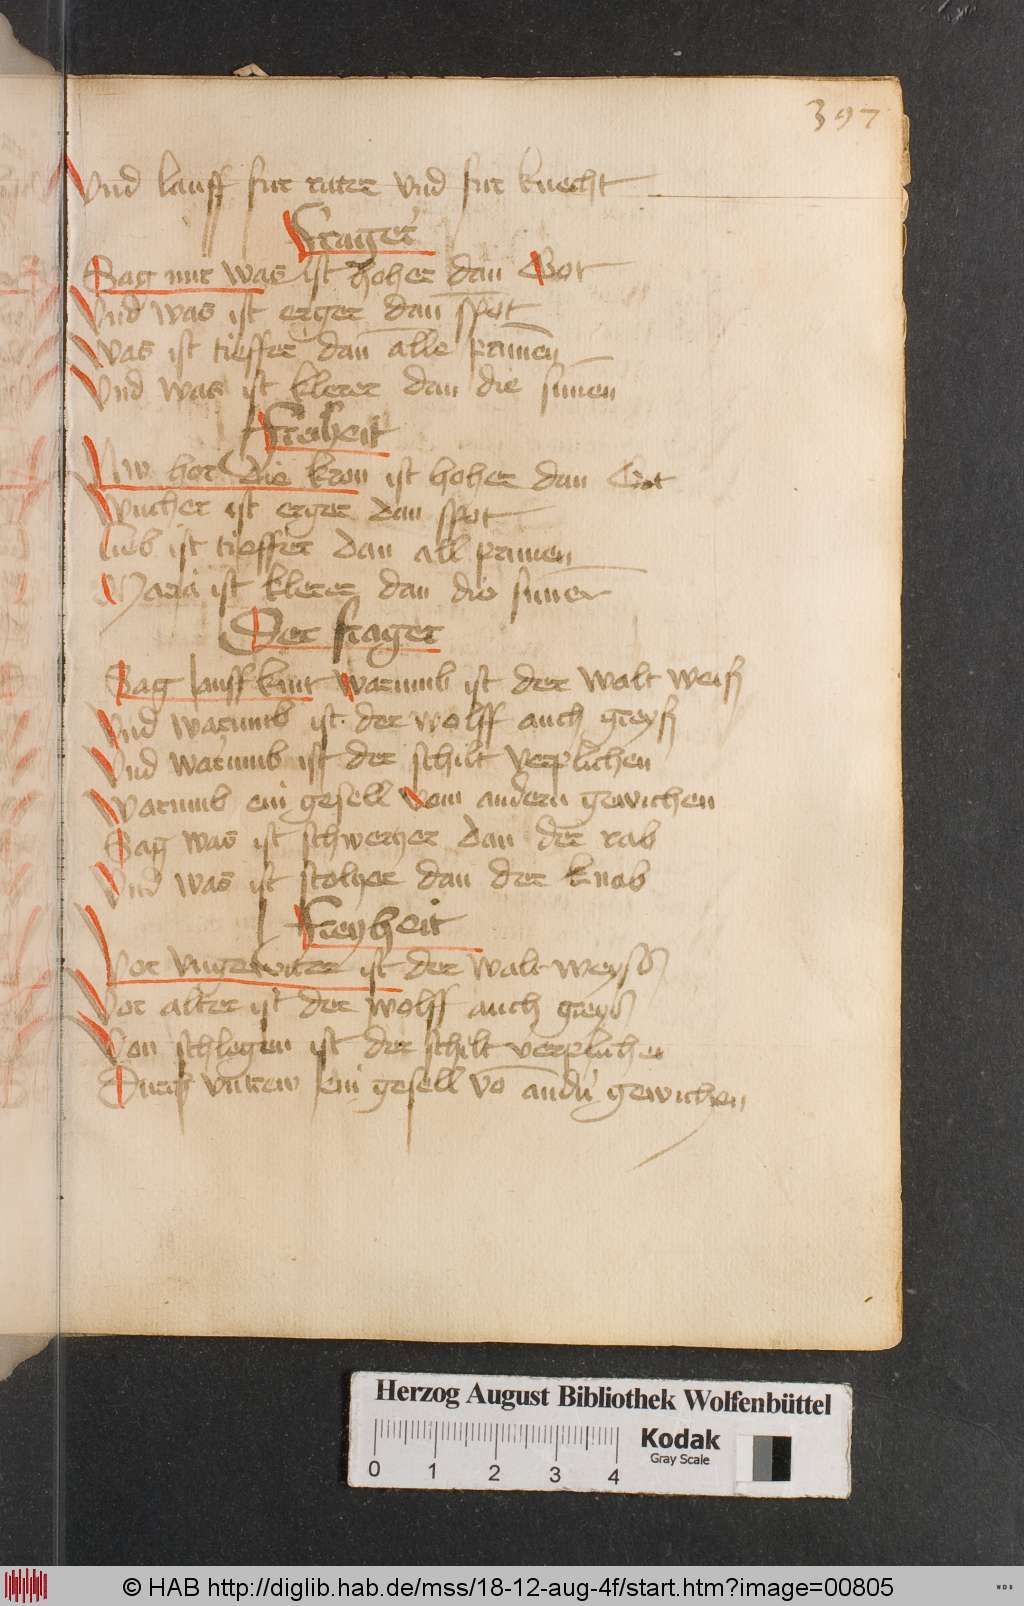 397
Vnd lauff fur ritter vnd fur knecht
Frager
Sag mir was ist hoher dan Got
Vnd was ist erger dan spot
Was ist tieffer dan alle prunnen
Vnd was ist klerer dan die sunnen
Freiheit
die kron ist hoher dan Got
Wucher ist erger dan spot
Lieb ist tieffer dan all prunnen
Maria ist klerer dan die sunnen
Der frager
Sag lauffkint warumb ist der walt weiß
Vnd warumb ist der wolff auch greyß
Vnd warumb ist der schilt verplichen
Warumb ein gesell vom andern gewichen
Sag was ist schwerczer dan der rab
Vnd was ist stolczer dan der knab
Freyheit
Vor vngewitter ist der walt weyß
Vor alter ist der wolff auch greyß
Von schlegen ist der schilt verplichen
Durch vntrew ein gesell vō andn̄ gewichen
Herzog August Bibliothek Wolfenbüttel
0 1 2 3 4
Kodak
Gray Scale
© HAB http://diglib.hab.de/mss/18-12-aug-4f/start.htm?image=00805
WDB